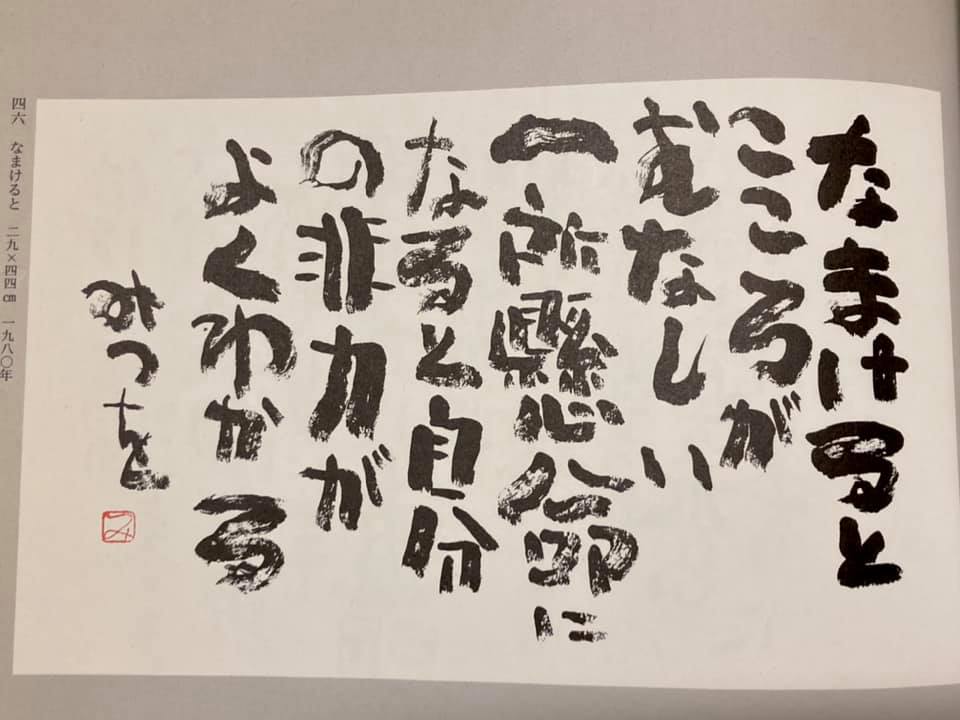 なまけると
こころが
むなしい
一所懸命に
なると自分
の非力が
よくわかる
みつを
み
四六 なまけると 二九×四四㎝ 一九八〇年